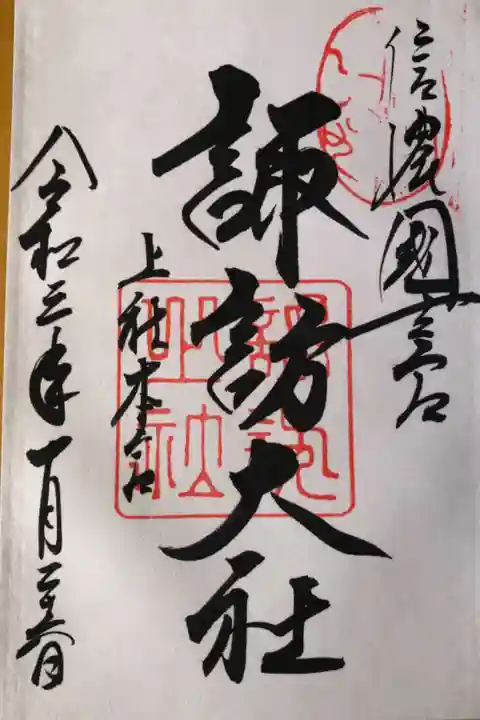 信濃國一之宮
諏訪大社
上社本宮
令和三年一月二十六日